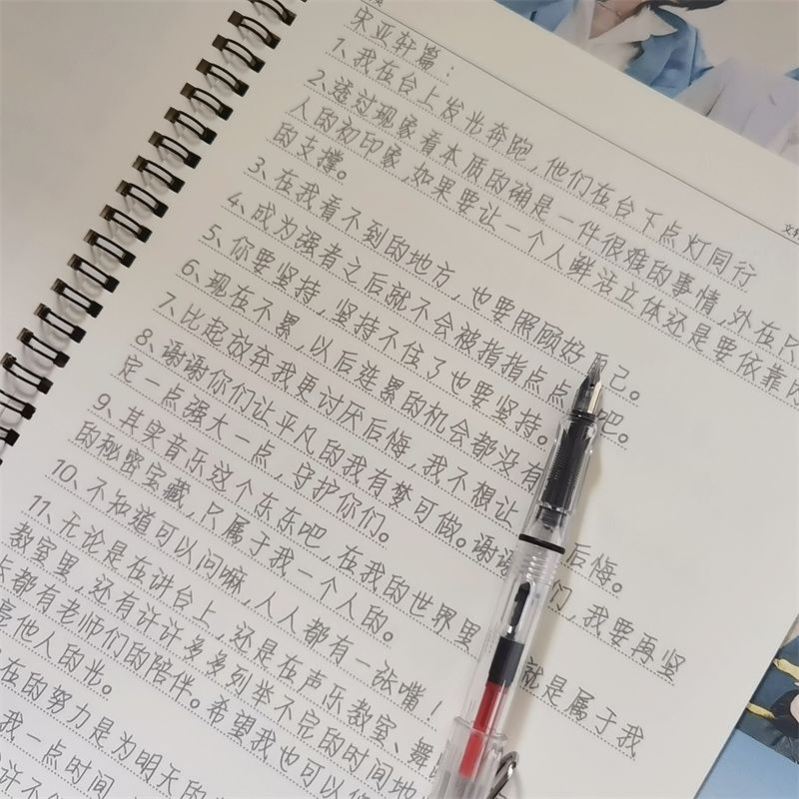 宋亚轩篇：
1、我在台上发光奔跑，他们在台下点灯同行
2、透过现象看本质的确是一件很难的事情，外在只
人的初印象，如果要让一个人鲜活立体还是要依靠
的支撑。
3、在我看不到的地方，也要照顾好自己。
4、成为强者之后就不会被指指点点 吧。
5、你要坚持，坚持不住了也要坚持。
6、现在不累，以后连累的机会都没有
7、比起放弃我更讨厌后悔，我不想让 后悔。
8、谢谢你们让平凡的我有梦可做。谢谢 们，我要再坚
定一点强大一点，守护你们。
9、其实音乐这个东东吧，在我的世界里 就是属于我
的秘密宝藏，只属于我一个人的。
10、不知道可以问嘛，人人都有一张嘴！
11、无论是在讲台上，还是在声乐教室、舞
教室里，还有许许多多列举不完的时间地
都有老师们的陪伴。希望我也可以
是他人的光。
在的努力是为明天的
我一点时间
许不
文轩